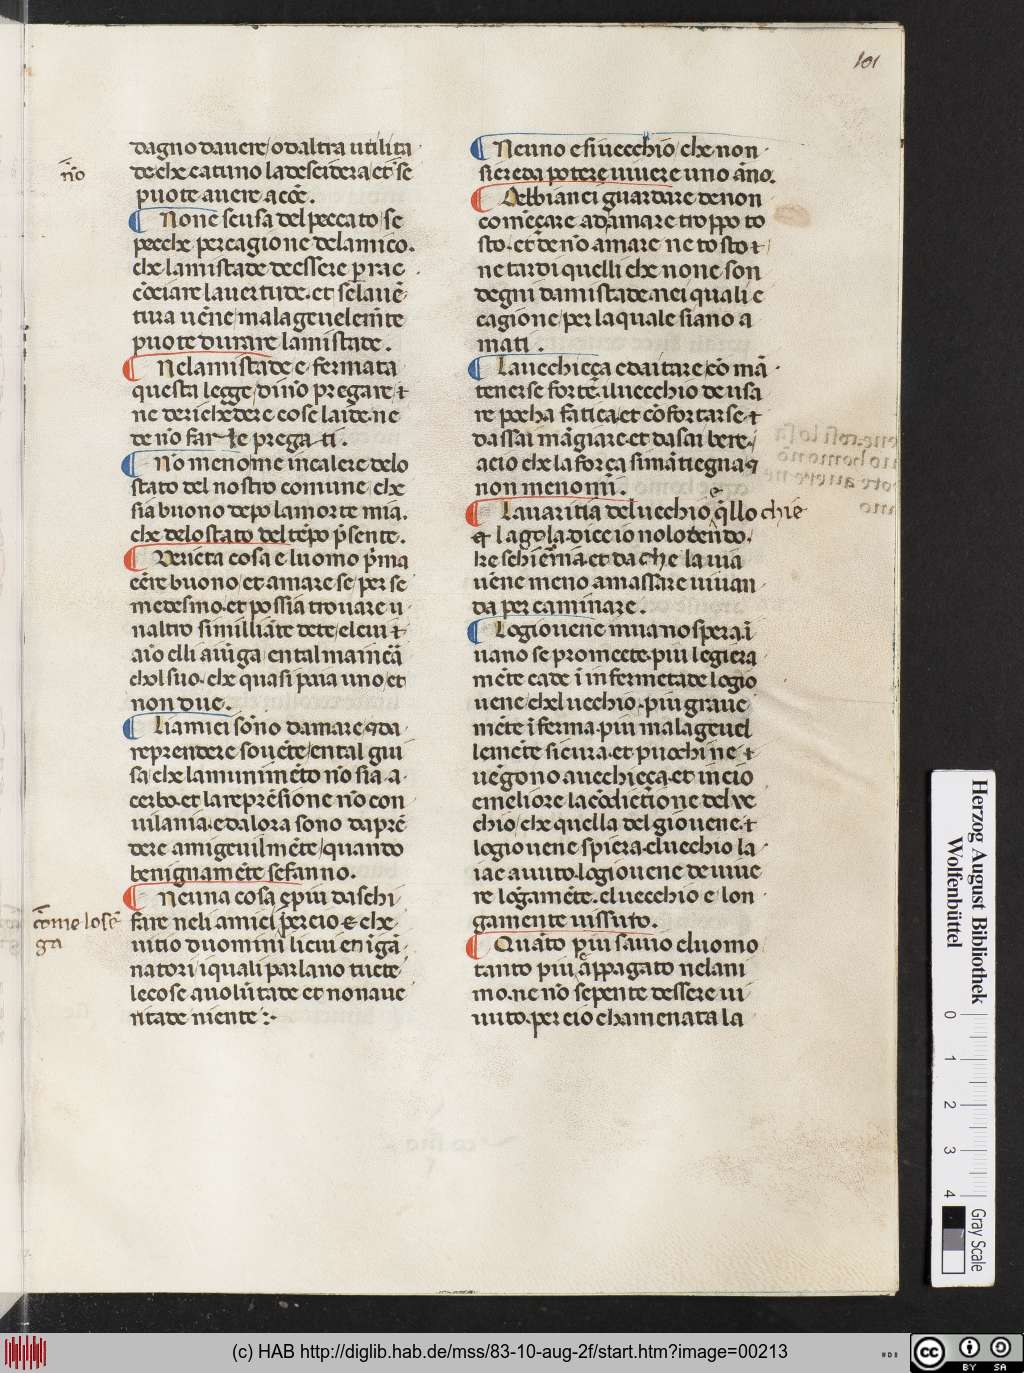 101
dagno davere/o daltra utilita
de/che catuno la desidera/et se
puote avere accē.
¶ Nonē scusa del peccato/se
pecche per cagione delamico.
che lamistade deessere p̄rac
cōciare la vertude. et se lavē
tura vēne/malagevelem̄te
puote durare lamistade.
¶ Nelamistade e fermata
questa legge/di nō pregare/⁊
ne derichedere cose laide. ne
de nō far le pregati.
¶ Nō meno me incalere delo
stato del nostro comune/che
sia buono depo la morte mia.
che delo stato del tēpo p̄sente.
¶ Dericta cosa e/luomo p̄ma
eēre buono/et amare se/per se
medesmo. et possia trovare u
naltro similliāte dete/elcui ⁊
aīo elli aviīga/en tal mainēā
chol suo. che quasi paia uno/et
non due.
¶ Li amici sōno damare ⁊ da
reprendere sovēte/en tal gui
sa/che lamunimēto nō sia a
cerbo. et la reprēsione nō con
vilania. e dalora sono daprē
dere amigevilmēte/quando
benignamēte se fanno.
¶ Neuna cosa ę piu daschi
fare neli amici/percio ⁊ che
vitio duomini lievi en īgā
natori/i quali parlano tucte
le cose a volūtade et non a ve
ritade niente :·
nō
cōme losē
ga
¶ Neuno e si vecchio/che non
si creda potere vivere uno āno.
¶ Debbianci guardare de non
comēçare ad amare troppo to
sto. et de nō amare ne tosto ⁊
ne tardi quelli che none son
degni damistade. nei quali e
cagione/per la quale siano a
mati.
¶ La vechieça e daitare/cō mā
tenerse forte. il vecchio de usa
re poeha fatica. et cōfortarse ⁊
dassai māgiare. et dasai bere.
acio che la força si mātiegna ⁊
non menomi.
¶ Lavaritia del vecchio q̄llo chie
⁊ lagola. dice io nolo tendo.
ke schiernia. et da che la via
vēne meno amassare vivan
da per caminare.
¶ Logiovene invano spera. ī
vano se promecte. piu legiera
mēte cade ī infermetade logio
vene/chel vecchio. piu grave
mēte īferma. piu malagevel
lemēte sicura. et pucchi ne ⁊
vēgono avecchieça. et in cio
e meliore la cōdictione del ve
chio/che quella del giovene. ⁊
logiovene spiera. el vecchio la
iae avuto. logiovene de vive
re lōgamēte. el vecchio e lon
gamente vissuto.
¶ Quāto piu savio el uomo
tanto piu āppagato nelani
mo. ne nō se pente dessere vi
vuto. per cio cha menata la
Herzog August Bibliothek
Wolfenbüttel
0 1 2 3 4
Gray Scale
(c) HAB http://diglib.hab.de/mss/83-10-aug-2f/start.htm?image=00213
cc BY SA